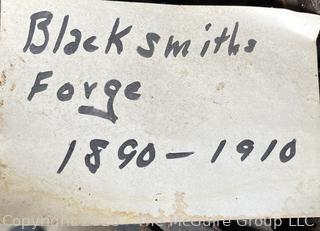 Blacksmiths
Forge
1890-1910
The McGuire Group LLC